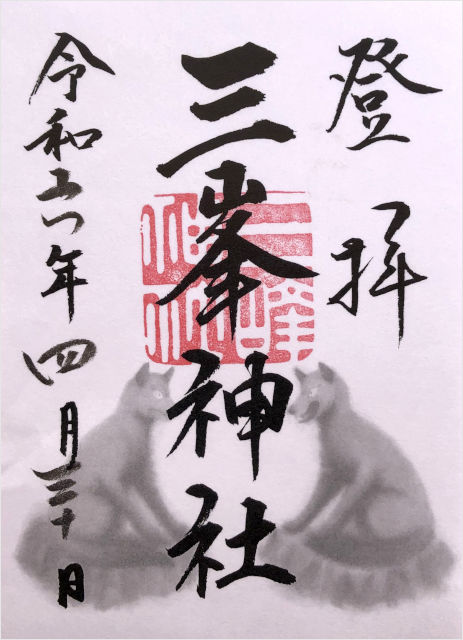 登拝
三峯神社
令和六年四月三十日